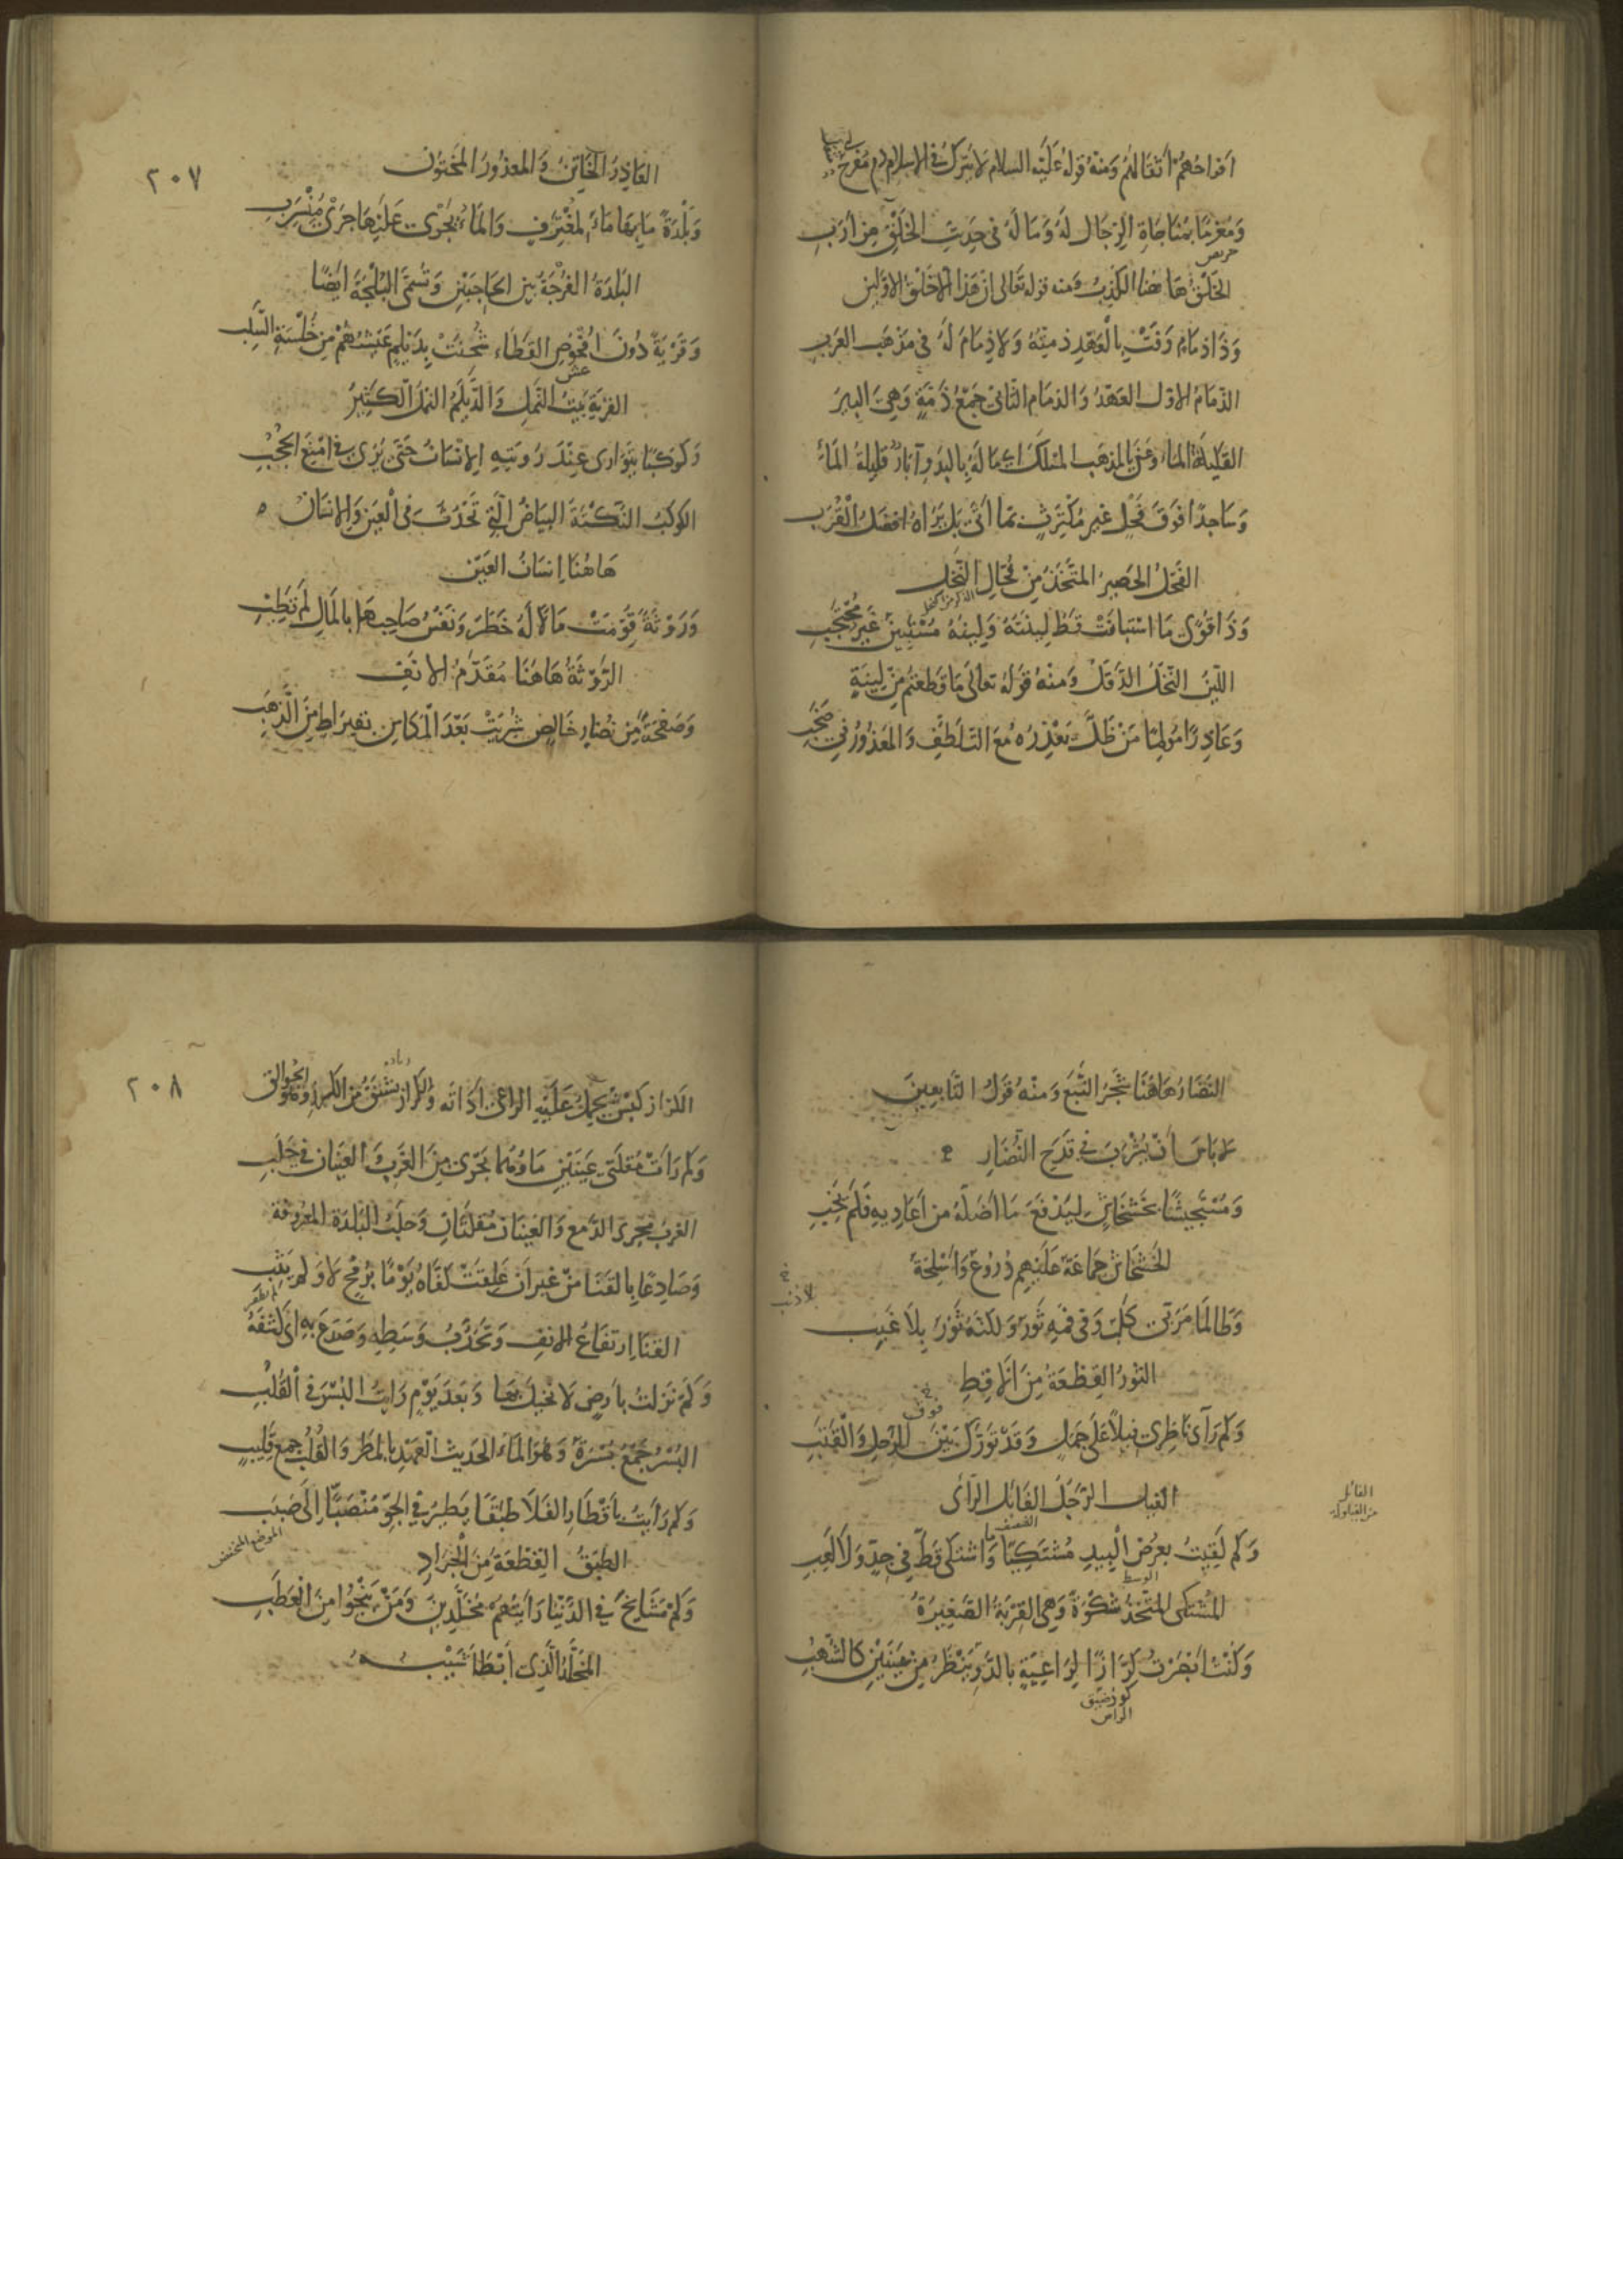 افراحهم أثقالهم ومنه قوله عليه السلام لا يترك في الاسلام مفرح
ومغرما بمناجاة الرجال له وما له في حديث الخلق من ارب
حريص
الخلق هاهنا الكذب ومنه قوله تعالى ان هذا الا خلق الاولين
وذا ذمام وفت بالعهد ذمته ولا ذمام له في مذهب العرب
الذمام الاول العهد والذمام الثاني جمع ذمة وهي البير
القليلة الماء وعنى بالمذهب المسلك اي ما له بالبدو آبار قليلة الماء
وساجدا فوق فحل غير مكترث بما اتى بل يراه افضل القرب
الفحل الحصير المتخذ من فحال النخل
الذكر من النخل
وذا قوى ما استبانت قط لينته ولينه مستبين غير محتجب
اللين النخل الدقل ومنه قوله تعالى ما قطعتم من لينة
وعاذرا مولما من ظل يعذره مع التلطف والمعذور في صخب
٢٠٧
العاذر الخاتن والمعذور المختون
وبلدة ما بها ماء لمغترف والماء يجرى عليها جرى منسرب
البلدة الفرجة بين الحاجبين وتسمى البلجة ايضا
وقرية دون افحوص القطاء شحنت بديلم عيشهم من خلسة السلب
عش
القرية بيت النمل والديلم النمل الكثير
وكوكبا يتوارى عند رويته الانسان حتى يرى في امنع الحجب
الكوكب النكتة البياض التي تحدث في العين والانسان ه
هاهنا انسان العين
وروثة قومت مالا له خطر ونفس صاحبها بالمال لم تطب
الروثة هاهنا مقدم الانف
وصفحة من نضار خالص شريت بعد المكاس بقيراط من الذهب
النضار هاهنا شجر النبع ومنه قول التابعين
لا باس أن يشرب في قدح النضار
ومستجيشا بخشخاش ليدفع ما اضله من اعاديه فلم يخب
الخشخاش جماعة عليهم دروع واسلحة
لا ذنب
وطالما مر بي كلب وفي فمه ثور ولكنه ثور بلا غبب
الثور القطعة من الاقط
فوق
وكم رآى ناظري فيلا على جمل وقد تورك بين الرحل والقتب
الفيل الرجل الفائل الرأى
الفائل
من الفيلولة
وكم لقيت بعرض البيد مشتكيا وما اشتكى قط في جد ولا لعب
الوسط
المشتكى المتخذ شكوة وهي القربة الصغيرة
وكنت أبصرت كرازا لراعية بالدو ينظر من عينين كالشهب
كوز ضيق
الراس
٢٠٨
الكراز كبش يحمل عليه الراعى اداته والكراز يشتق من الكرز وهو الجوالق
وكم رأت مقلتي عينين ماؤهما يجرى من الغرب والعينان في حلب
الغرب مجرى الدمع والعينان مقلتان وحلب البلدة المعروفة
وصادعا بالقنا من غير ان علقت كفاه يوما برمح لا ولم يثب
لم يطفر
القنا ارتفاع الانف وتحدب وسطه وصدع به اى كشفه
وكم نزلت بارض لا نخيل بها وبعد يوم رايت البسر في القلب
البسر جمع بسرة وهو الماء الحديث العهد بالمطر والقلب جمع قليب
وكم رايت باقطار الفلا طبقا يطير في الجو منصبا الى صبب
الموضع المنخفض
الطبق القطعة من الجراد
وكم مشايخ في الدنيا رايتهم مخلدين ومن ينجوا من العطب
المخلد الذي أبطأ شيبه